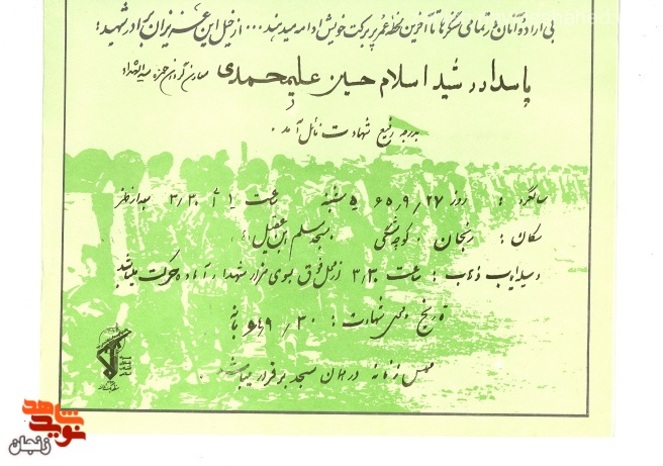 بی اراده آنان در تمامی سنگرها تا آخرین لحظه عمر پر برکت خویش ادامه میدهند... از خیل این عزیزان برادر شهید:
پاسدار رشید اسلام حسین علیمحمدی معاون گردان حمزه سیدالشهداء
بدرجه رفیع شهادت نائل آمد.
سالگرد : روز ۶۵/۹/۲۷ ۵ شنبه ساعت ۱ تا ۳/۳۰ بعدازظهر
مکان : زنجان . کوچه مشکی . مسجد مسلم ابن عقیل
وسیله ایاب و ذهاب : ساعت ۳/۳۰ از محل فوق بسوی مزار شهداء آماده حرکت میباشد
تاریخ و محل شهادت : ۶۴/۹/۲۰ بانه
مجلس زنانه در همان مسجد برقرار میباشد
نوید شاهد
زنجان